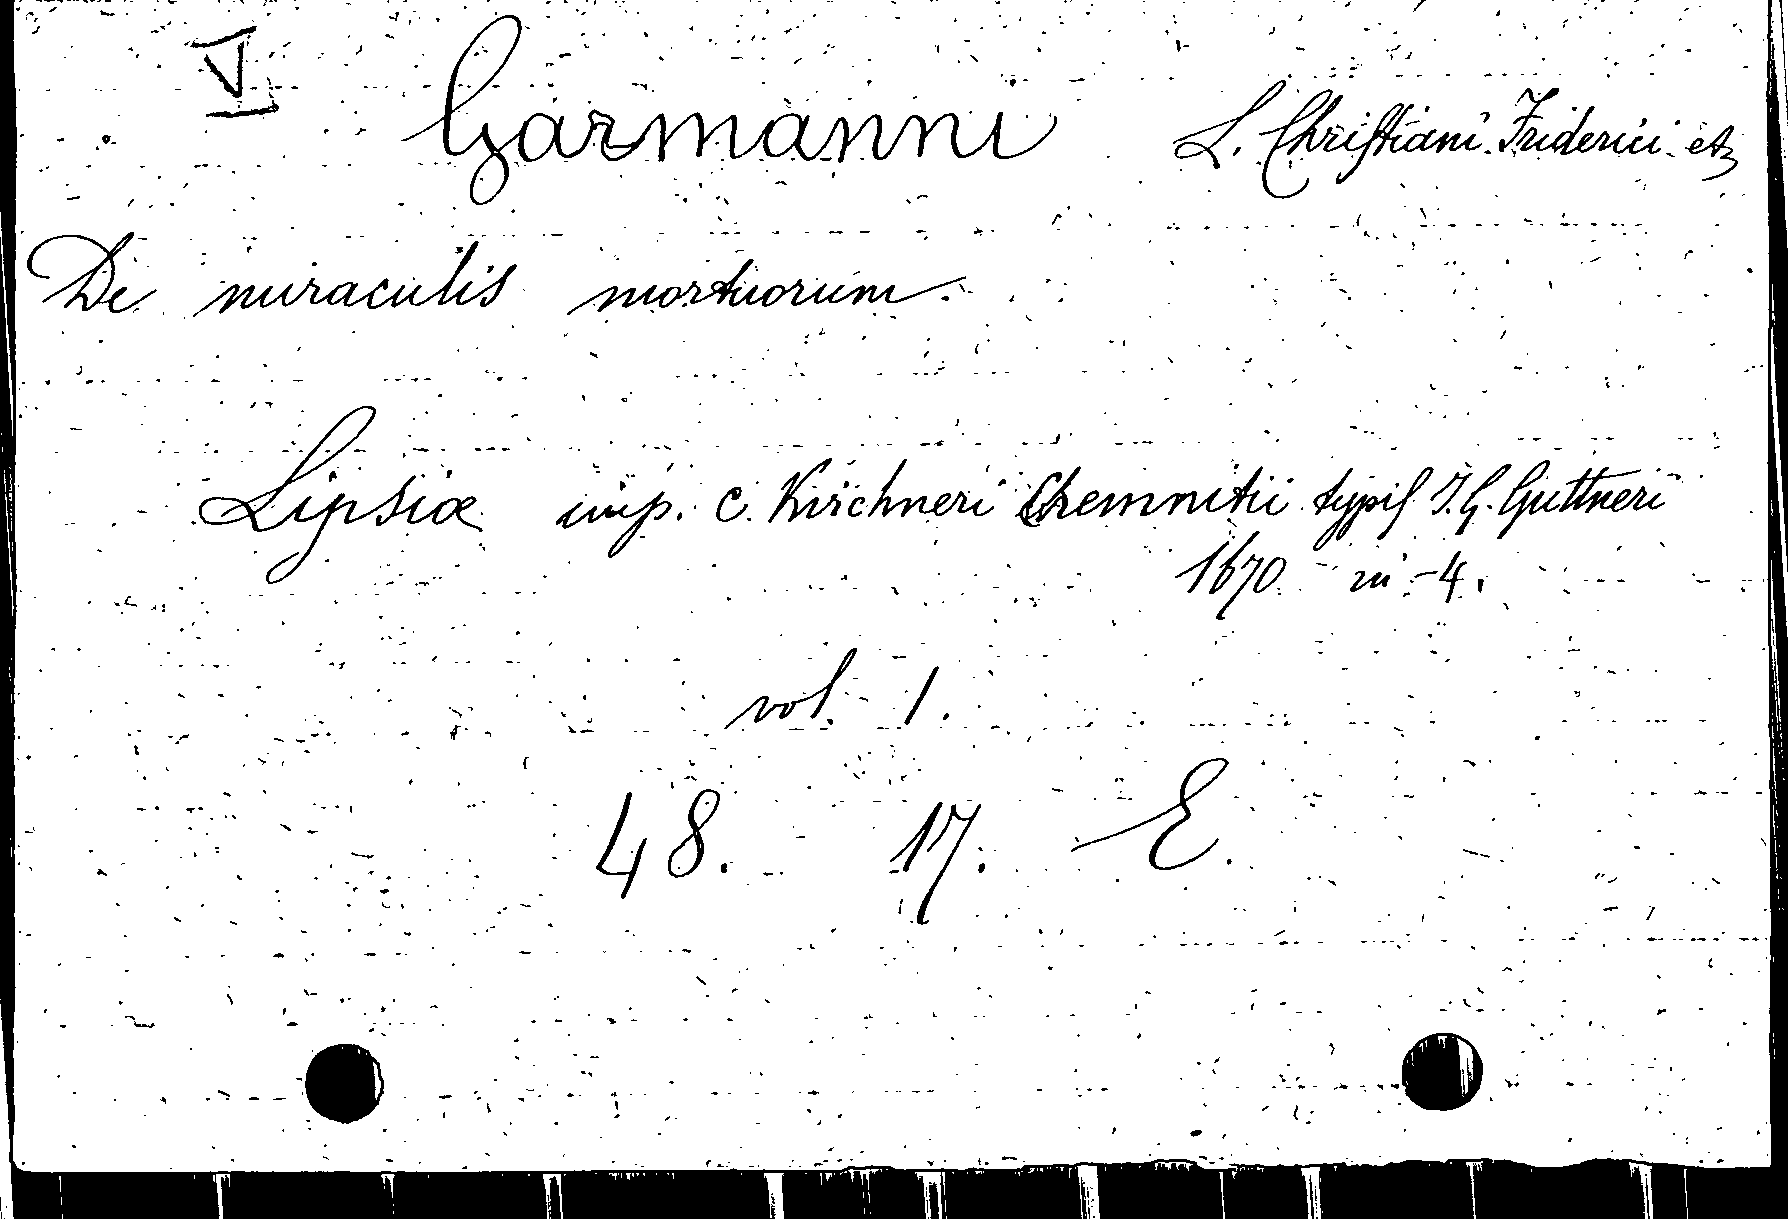 V Garmanni L. Christiani Friderici etz
De miraculis mortuorum.
Lipsiæ imp. C. Kirschneri Chemnitii typis J. G. Guttneri
1670 in -4.
vol. 1.
48. 17. E.